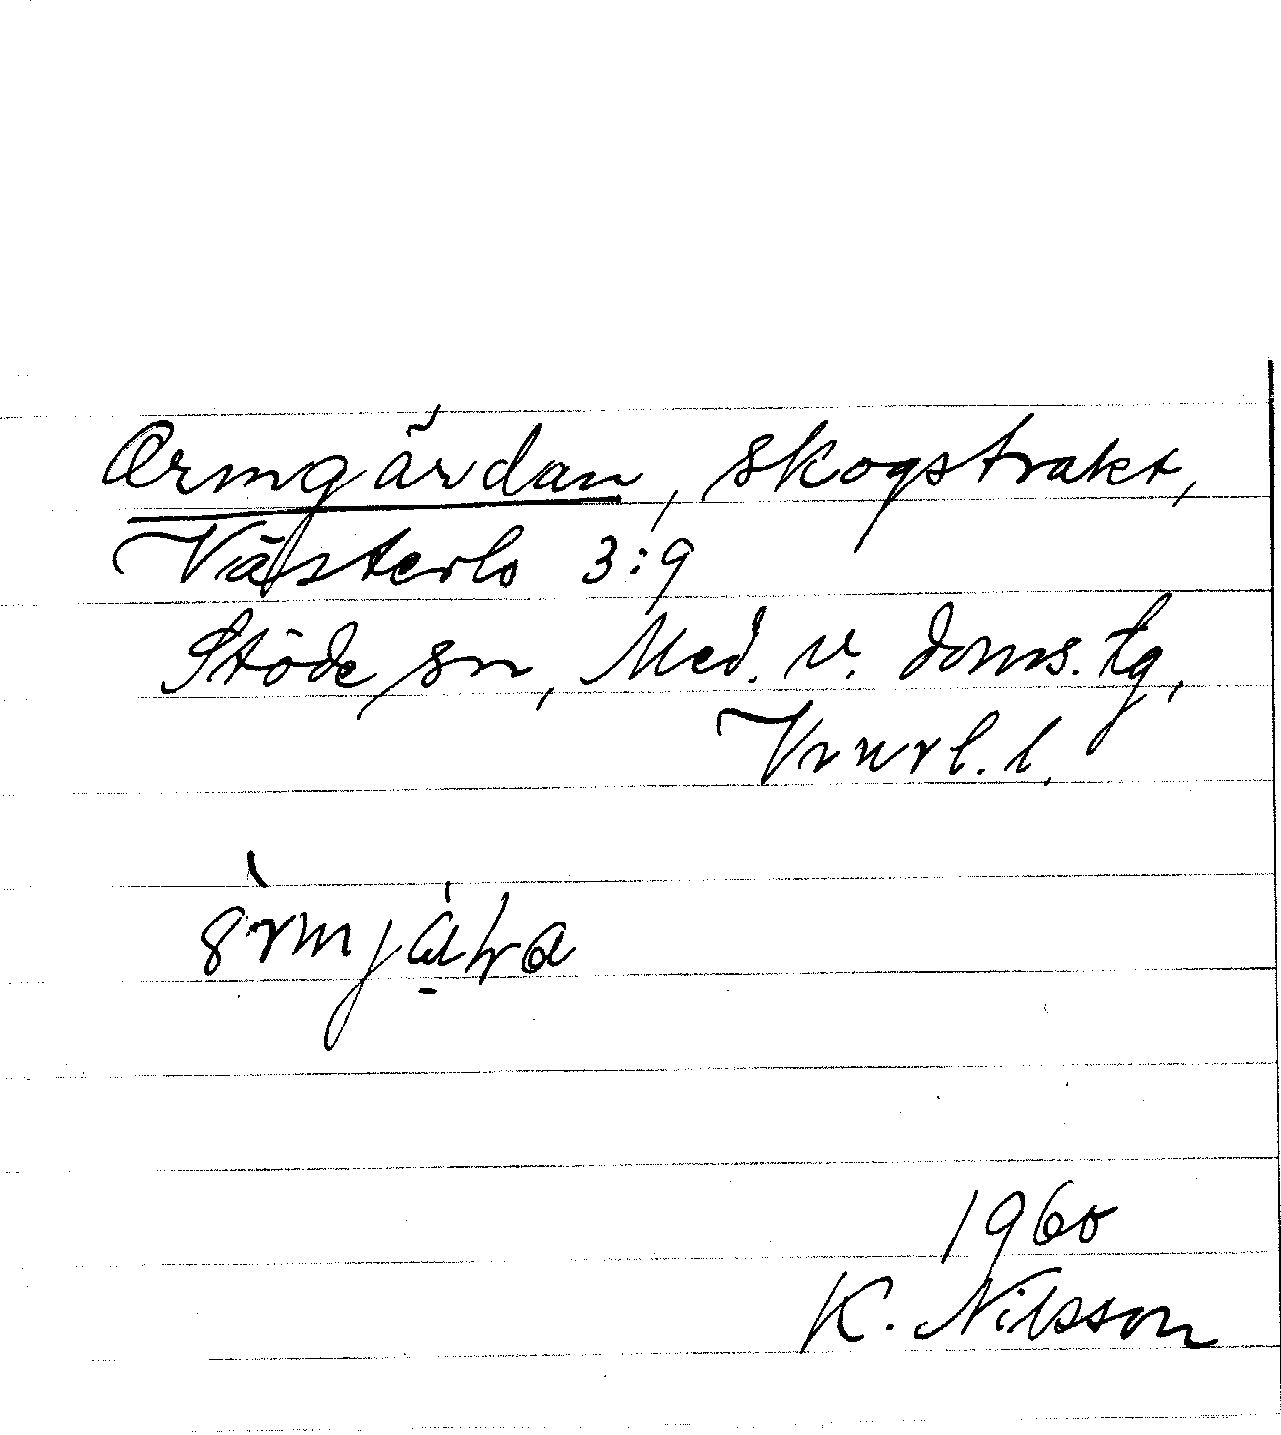 Ormgärdan, skogstrakt,
Västerlo 3:9
Stöde sn, Med. v. doms. tg,
Vnrl. l.
1960
K. Nilsson